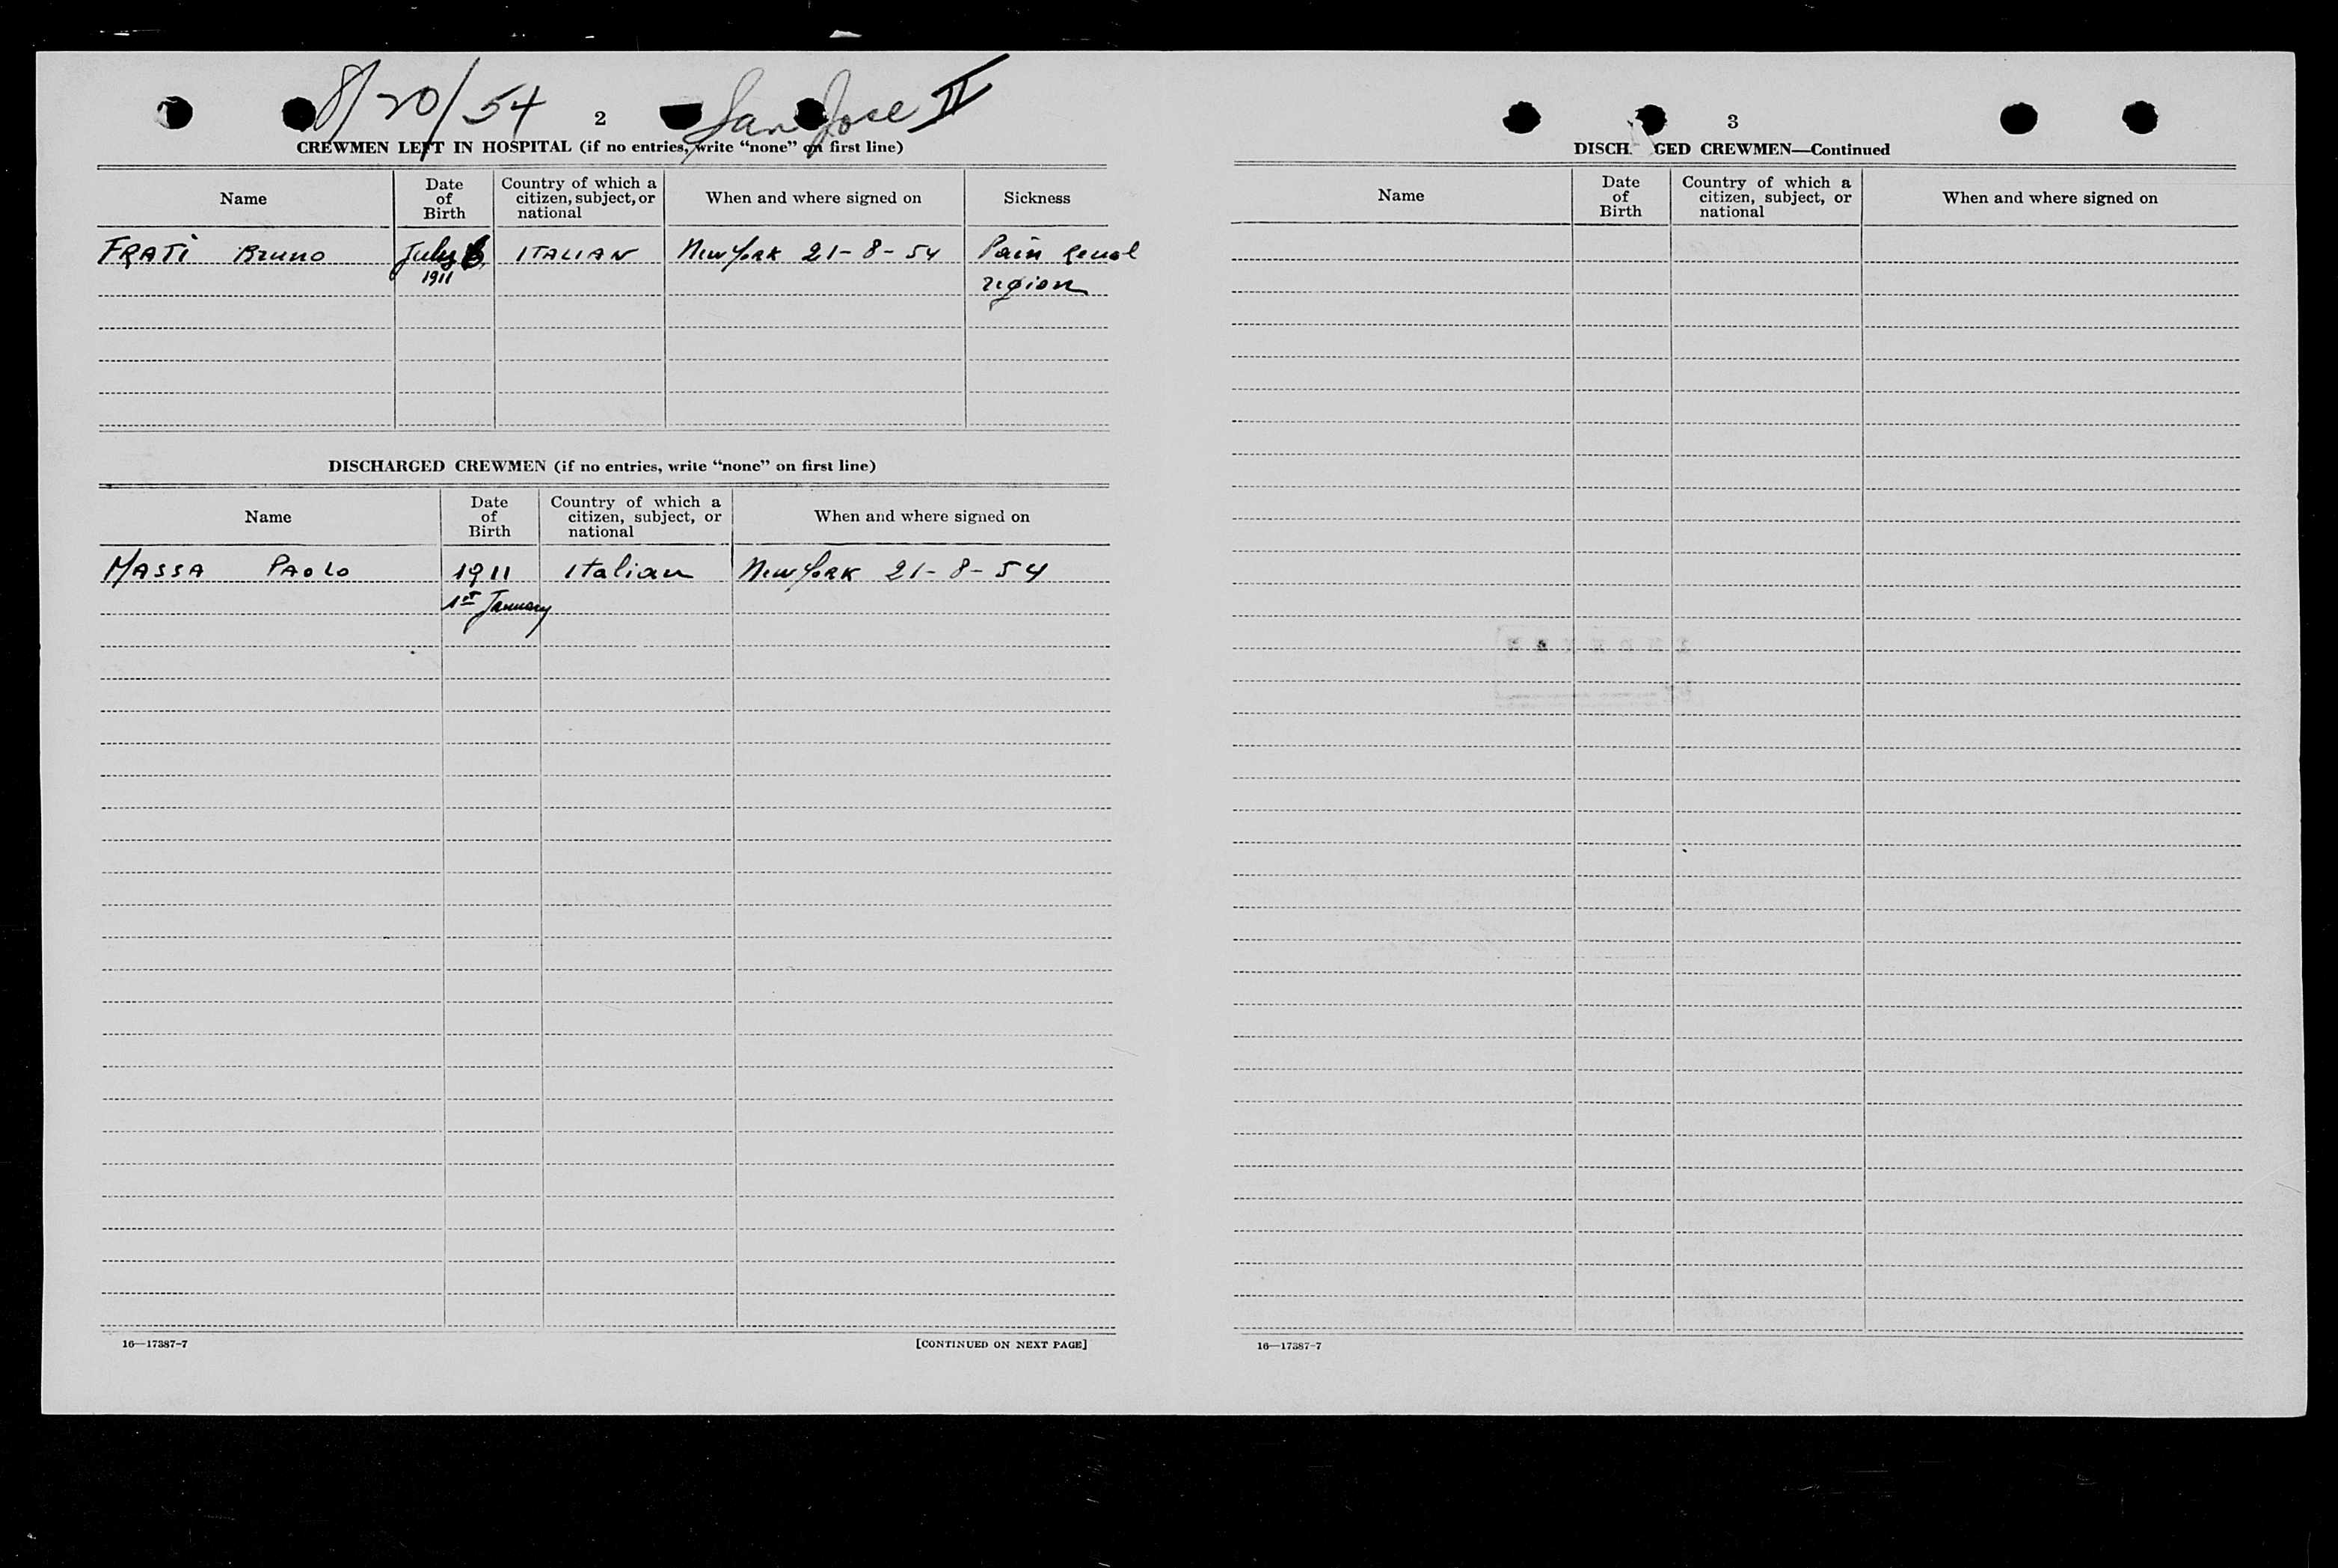 8/20/54 2 San Jose II
CREWMEN LEFT IN HOSPITAL (if no entries, write “none” on first line)
Name
Date of Birth
Country of which a citizen, subject, or national
When and where signed on
Sickness
FRATI Bruno July 6 ITALIAN New York 21-8-54 Pain renal
1911 region
DISCHARGED CREWMEN (if no entries, write “none” on first line)
Name
Date of Birth
Country of which a citizen, subject, or national
When and where signed on
MASSA PAOLO 1911 Italian New York 21-8-54
1st January
16—17387-7 [CONTINUED ON NEXT PAGE]
3
DISCH GED CREWMEN—Continued
Name
Date of Birth
Country of which a citizen, subject, or national
When and where signed on
16—17387-7